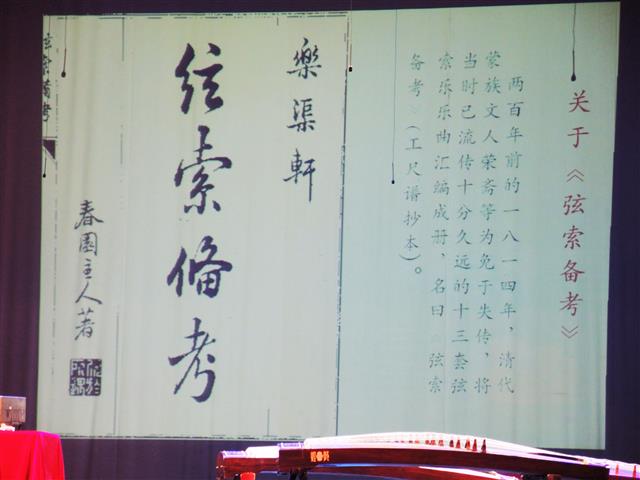 关于《弦索备考》
两百年前的一八一四年，清代
蒙族文人荣斋等为免于失传，将
当时已流传十分久远的十三套弦
索乐乐曲汇编成册，名曰《弦索
备考》（工尺谱抄本）。
樂渠軒
絃索俻考
春園主人著
絃索備考